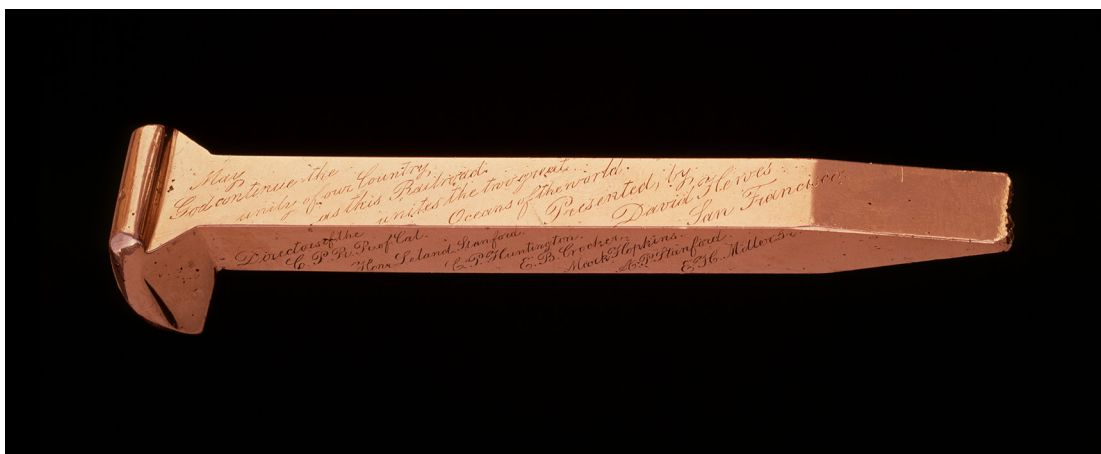 May
God continue the
unity of our Country,
as this Railroad
unites the two great
Oceans of the world.
Presented, by
David Hewes
San Francisco
Directors of the
C. P. R. R. of Cal.
Hon. Leland Stanford.
C. P. Huntington.
E. B. Crocker.
Mark Hopkins.
A. P. Stanford
E. H. Miller Jr